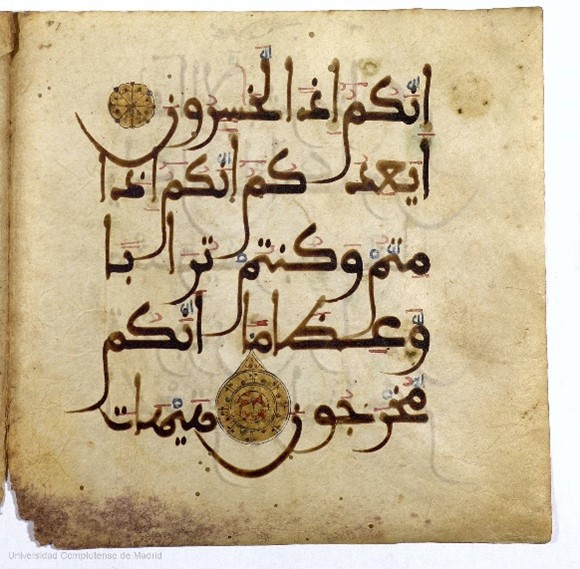 إِنَّكُمْ إِذًا لَّخَٰسِرُونَ
أَيَعِدُكُمْ أَنَّكُمْ إِذَا
مِتُّمْ وَكُنتُمْ تُرَابًا
وَعِظَامًا أَنَّكُم
مُّخْرَجُونَ هَيْهَاتَ
Universidad Complutense de Madrid